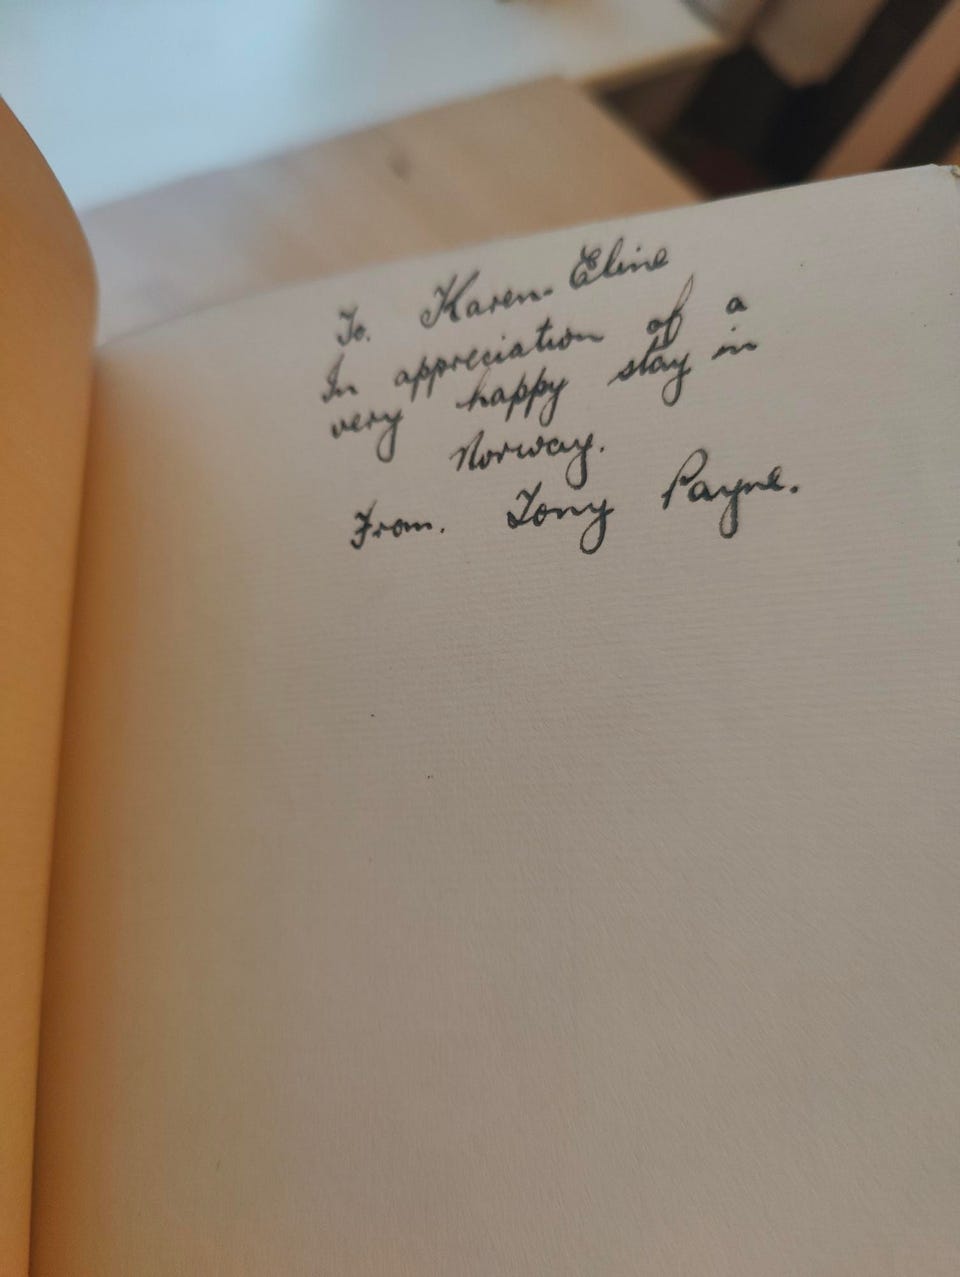 To. Karen-Eline
In appreciation of a
very happy stay in
Norway.
From. Tony Payne.